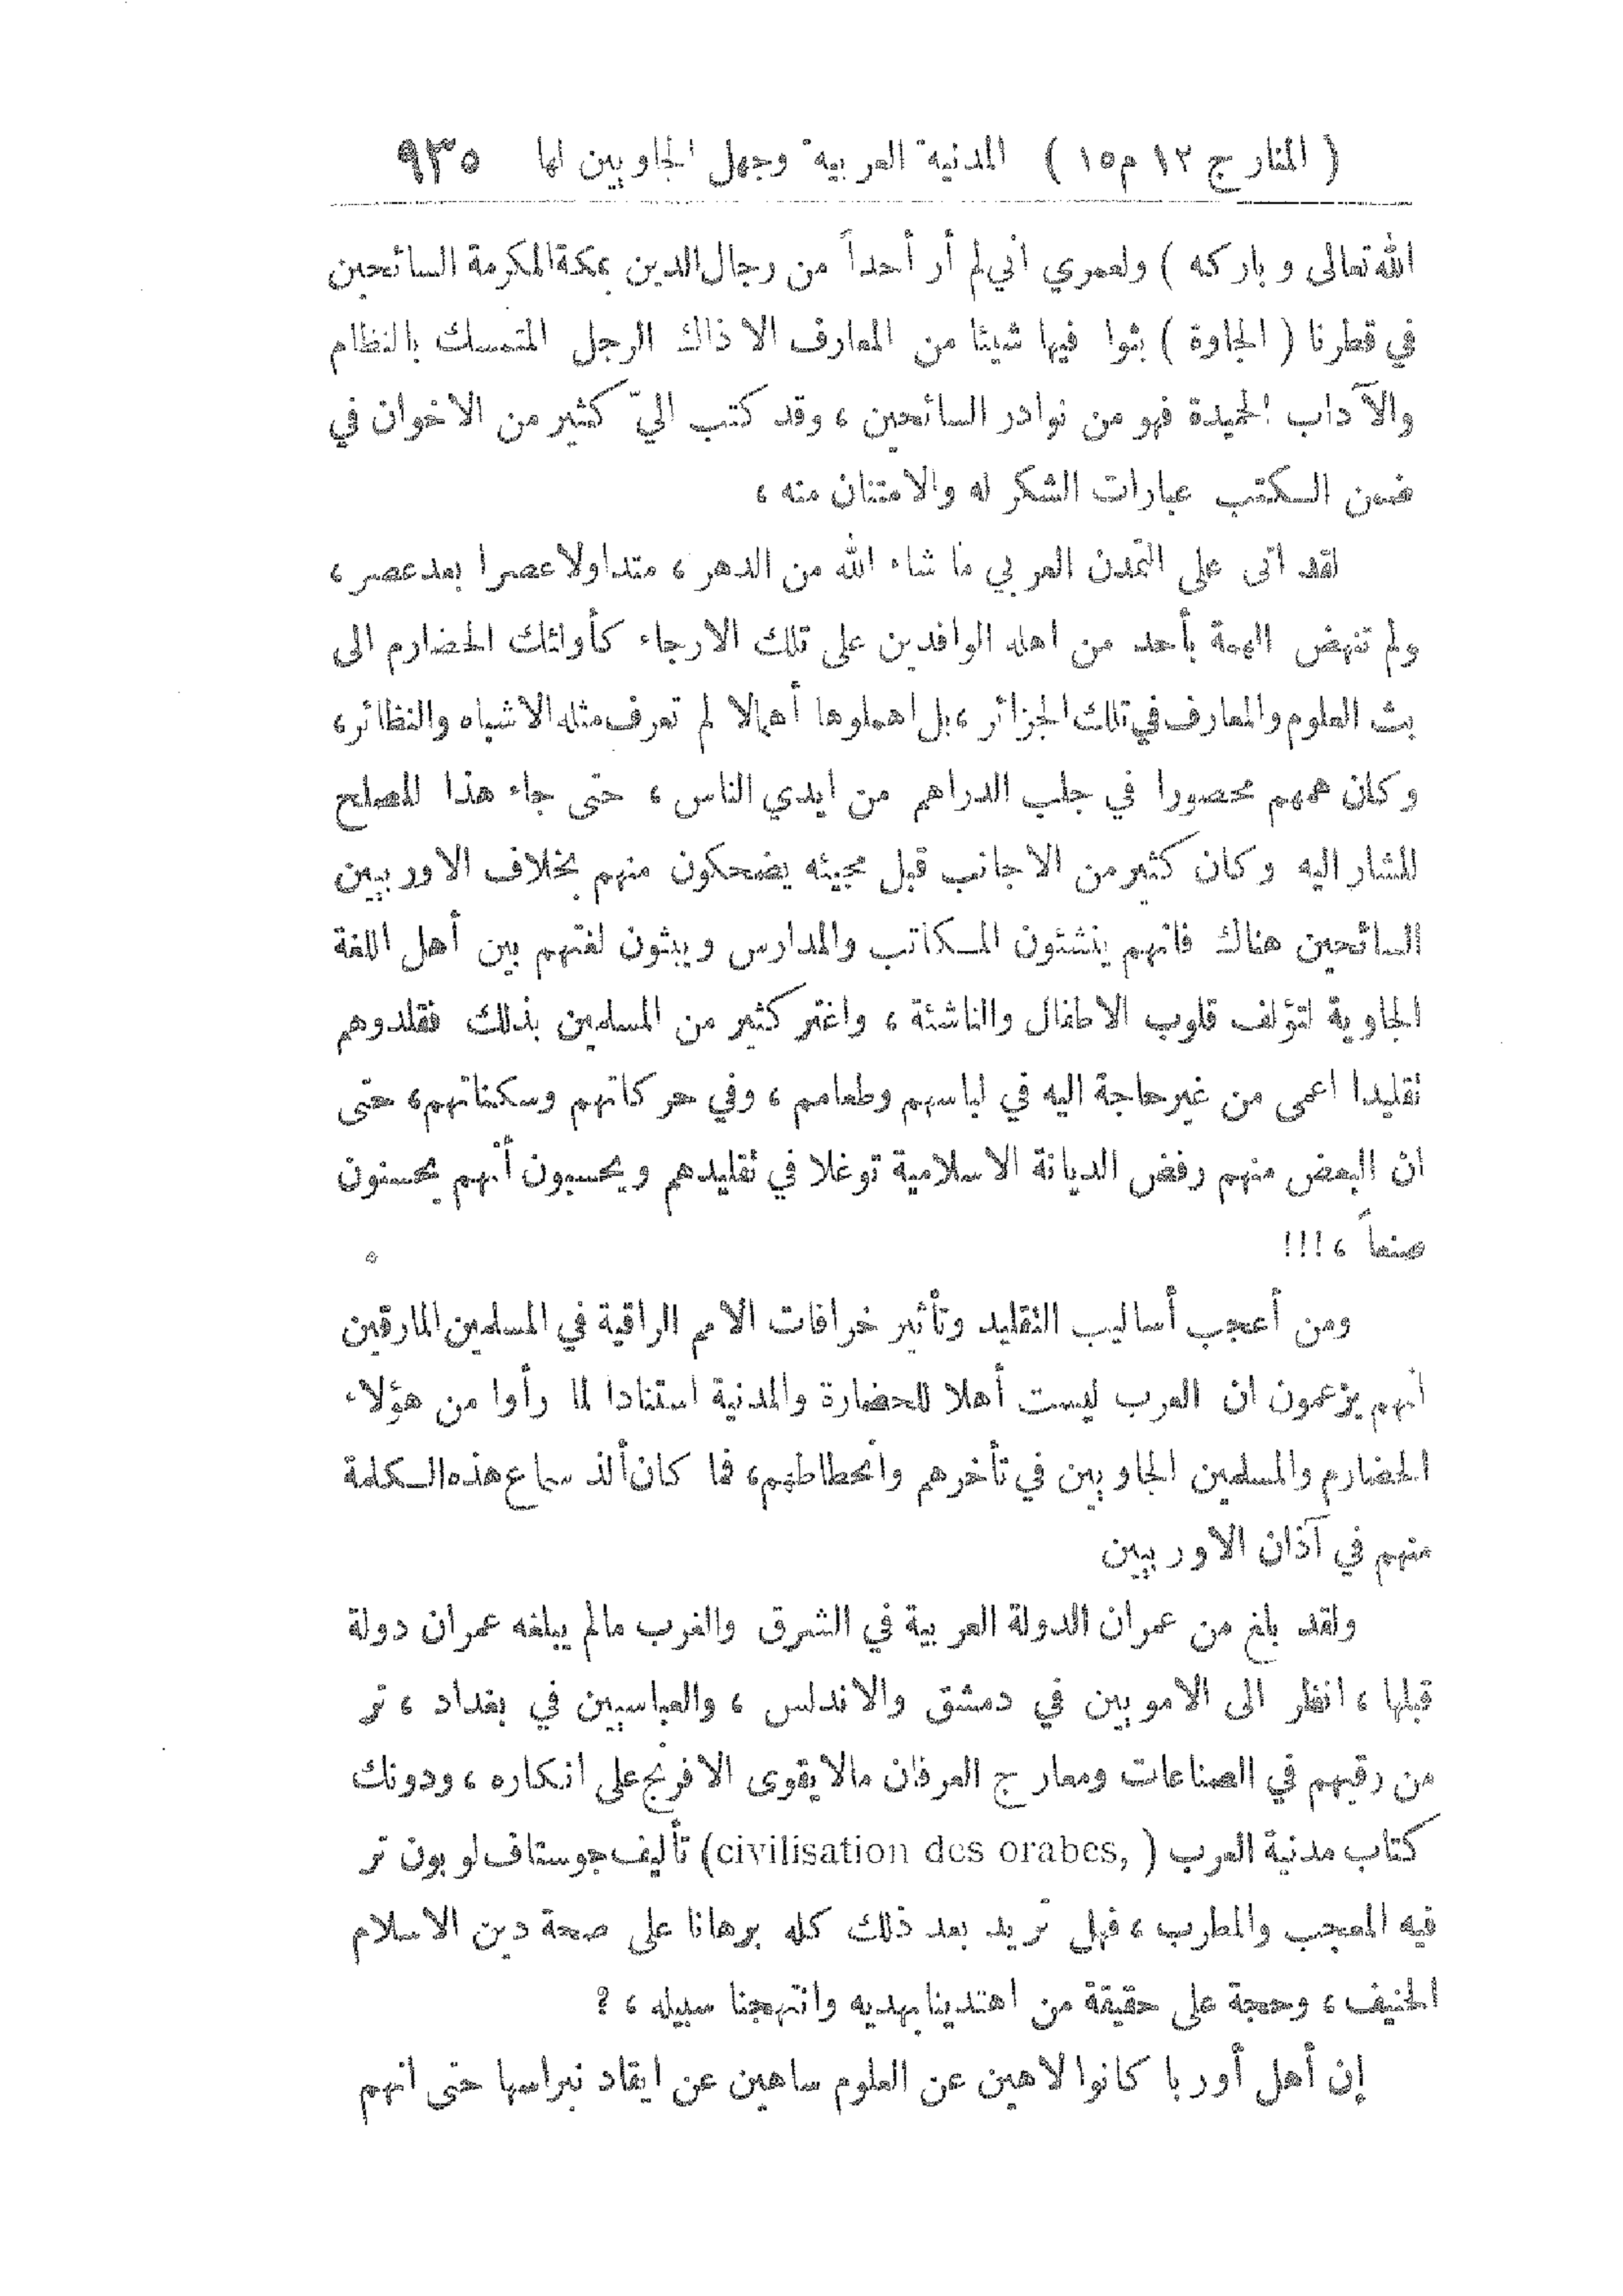 ( المنار ج ١٢ م ١٥ ) المدنية العربية وجهل الجاويين لها ٩٣٥
الله تعالى وباركه ) ولعمري اني لم أر أحداً من رجال الدين بمكة المكرمة السائحين
في قطرنا ( الجاوة ) بثوا فيها شيئا من المعارف الا ذاك الرجل المتمسك بالنظام
والآداب الحميدة فهو من نوادر السائحين ، وقد كتب اليّ كثير من الاخوان في
ضمن الكتب عبارات الشكر له والامتنان منه ،
لقد اتى على التمدن العربي ما شاء الله من الدهر ، متداولا عصرا بعد عصر ،
ولم تنهض الهمة بأحد من اهله الوافدين على تلك الارجاء كأولئك الحضارم الى
بث العلوم والمعارف في تلك الجزائر ، بل اهملوها أهمالا لم تعرف مثله الاشباه والنظائر ،
وكان همهم محصورا في جلب الدراهم من ايدي الناس ، حتى جاء هذا المصلح
المشار اليه وكان كثير من الاجانب قبل مجيئه يضحكون منهم بخلاف الاوربيين
السائحين هناك فانهم ينشئون المكاتب والمدارس ويبثون لغتهم بين أهل اللغة
الجاوية لتؤلف قلوب الاطفال والناشئة ، واغتر كثير من المسلمين بذلك فقلدوهم
تقليدا اعمى من غير حاجة اليه في لباسهم وطعامهم ، وفي حركاتهم وسكناتهم ، حتى
ان البعض منهم رفض الديانة الاسلامية توغلا في تقليدهم ويحسبون أنهم يحسنون
صنعاً ، !!!
ومن أعجب أساليب التقليد وتأثير خرافات الامم الراقية في المسلمين المارقين
أنهم يزعمون ان العرب ليست أهلا للحضارة والمدنية استنادا لما رأوا من هؤلاء
الحضارم والمسلمين الجاويين في تأخرهم وانحطاطهم ، فما كان ألذ سماع هذه الكلمة
منهم في آذان الاوربيين
ولقد بلغ من عمران الدولة العربية في الشرق والغرب مالم يبلغه عمران دولة
قبلها ، انظر الى الامويين في دمشق والاندلس ، والعباسيين في بغداد ، تر
من رقيهم في الصناعات ومعارج العرفان مالا يقوى الافرنج على انكاره ، ودونك
كتاب مدنية العرب ( civilisation des orabes, ) تأليف جوستاف لوبون تر
فيه المعجب والمطرب ، فهل تريد بعد ذلك كله برهانا على صحة دين الاسلام
الحنيف ، وحجة على حقيقة من اهتدينا بهديه وانتهجنا سبيله ، ؟
إن أهل أوربا كانوا لاهين عن العلوم ساهين عن ايقاد نبراسها حتى انهم